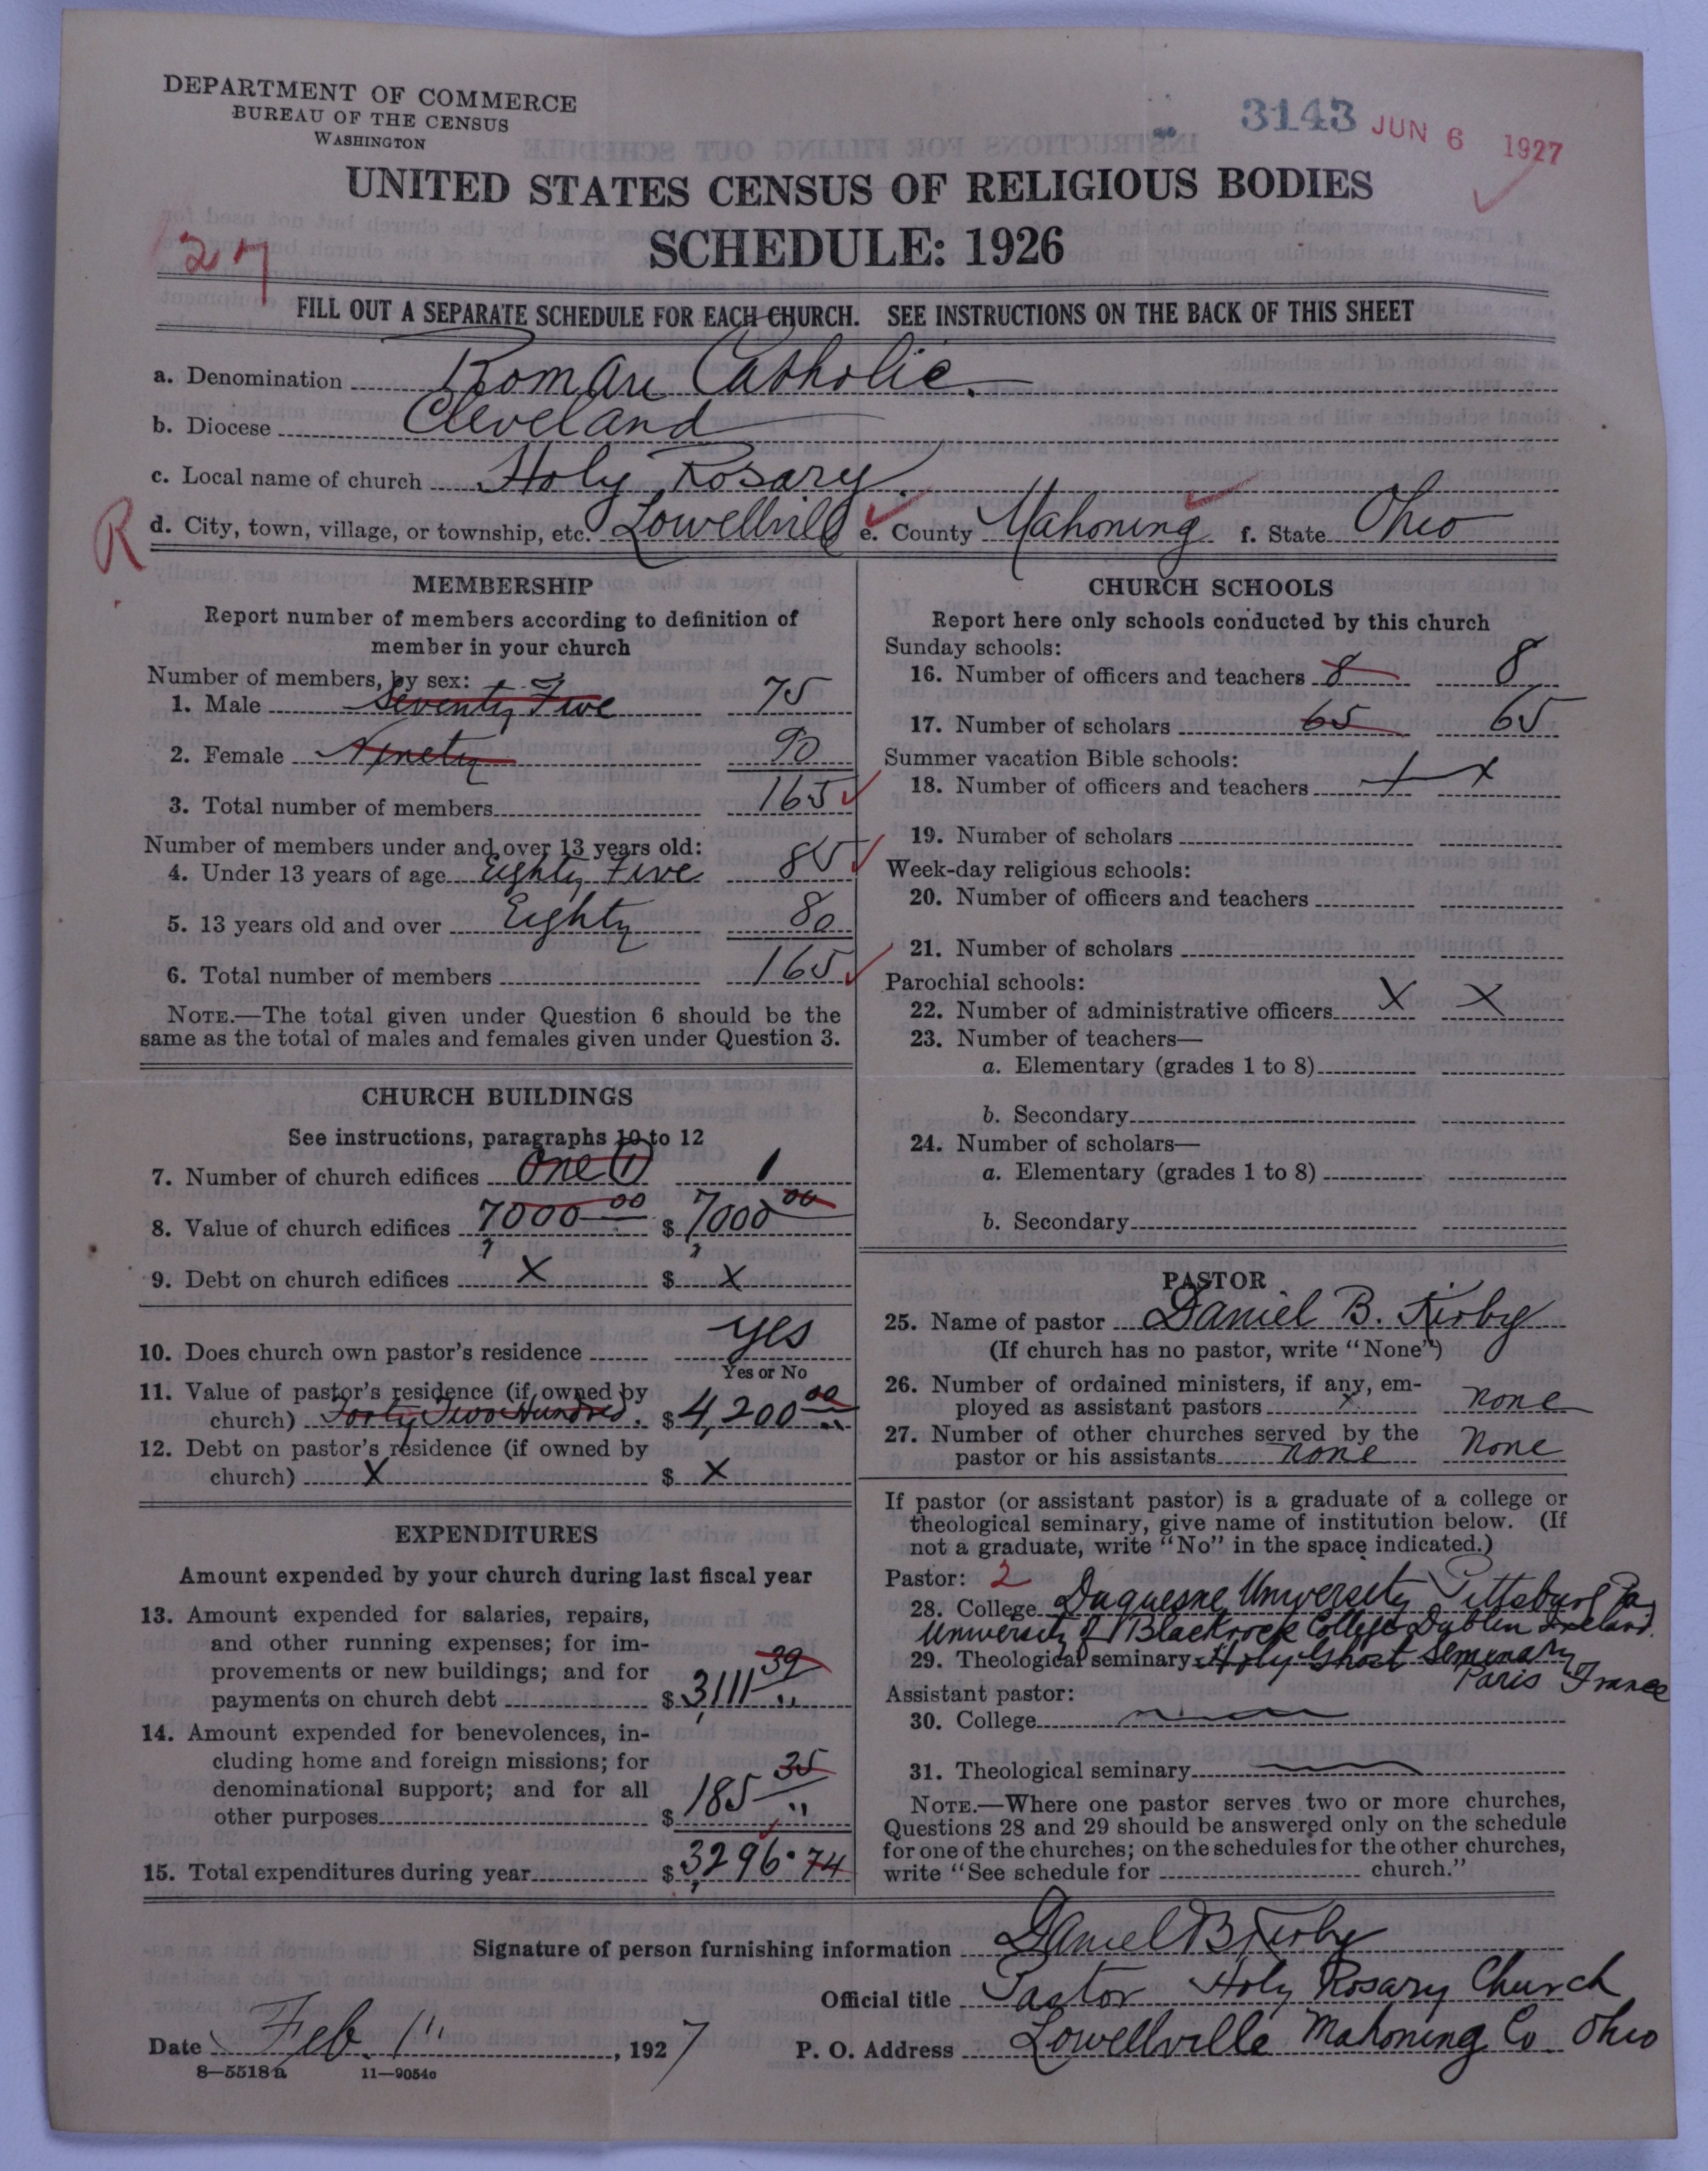 DEPARTMENT OF COMMERCE
BUREAU OF THE CENSUS
WASHINGTON
3143 JUN 6 1927
UNITED STATES CENSUS OF RELIGIOUS BODIES
27
SCHEDULE: 1926
FILL OUT A SEPARATE SCHEDULE FOR EACH CHURCH. SEE INSTRUCTIONS ON THE BACK OF THIS SHEET
a. Denomination Roman Catholic.
b. Diocese Cleveland
c. Local name of church Holy Rosary
R d. City, town, village, or township, etc. Lowellville e. County Mahoning f. State Ohio
MEMBERSHIP
Report number of members according to definition of
member in your church
Number of members, by sex:
1. Male Seventy Five 75
2. Female Ninety 90
3. Total number of members 165
Number of members under and over 13 years old:
4. Under 13 years of age Eighty Five 85
5. 13 years old and over Eighty 80
6. Total number of members 165
NOTE.—The total given under Question 6 should be the
same as the total of males and females given under Question 3.
CHURCH BUILDINGS
See instructions, paragraphs 10 to 12
7. Number of church edifices One (1) 1
8. Value of church edifices 7,000 00 $ 7,000 00
9. Debt on church edifices X $ X
10. Does church own pastor's residence yes
Yes or No
11. Value of pastor's residence (if owned by
church) Forty Two Hundred. $ 4,200 00
12. Debt on pastor's residence (if owned by
church) X $ X
EXPENDITURES
Amount expended by your church during last fiscal year
13. Amount expended for salaries, repairs,
and other running expenses; for im-
provements or new buildings; and for
payments on church debt $ 3,111 39
14. Amount expended for benevolences, in-
cluding home and foreign missions; for
denominational support; and for all
other purposes $ 185 35
15. Total expenditures during year $ 3,296.74
CHURCH SCHOOLS
Report here only schools conducted by this church
Sunday schools:
16. Number of officers and teachers 8 8
17. Number of scholars 65 65
Summer vacation Bible schools:
18. Number of officers and teachers X X
19. Number of scholars
Week-day religious schools:
20. Number of officers and teachers
21. Number of scholars
Parochial schools:
22. Number of administrative officers X X
23. Number of teachers—
a. Elementary (grades 1 to 8)
b. Secondary
24. Number of scholars—
a. Elementary (grades 1 to 8)
b. Secondary
PASTOR
25. Name of pastor Daniel B. Kirby
(If church has no pastor, write "None")
26. Number of ordained ministers, if any, em-
ployed as assistant pastors x none
27. Number of other churches served by the
pastor or his assistants none None
If pastor (or assistant pastor) is a graduate of a college or
theological seminary, give name of institution below. (If
not a graduate, write "No" in the space indicated.)
Pastor: 2
28. College Duquesne University Pittsburg Pa
University of Blackrock College Dublin Ireland.
29. Theological seminary Holy Ghost Seminary
Paris France
Assistant pastor:
30. College
31. Theological seminary
NOTE.—Where one pastor serves two or more churches,
Questions 28 and 29 should be answered only on the schedule
for one of the churches; on the schedules for the other churches,
write "See schedule for church."
Signature of person furnishing information Daniel B Kirby
Official title Pastor Holy Rosary Church
Date Feb. 1", 1927 P. O. Address Lowellville Mahoning Co. Ohio
8—5518a 11—9054c